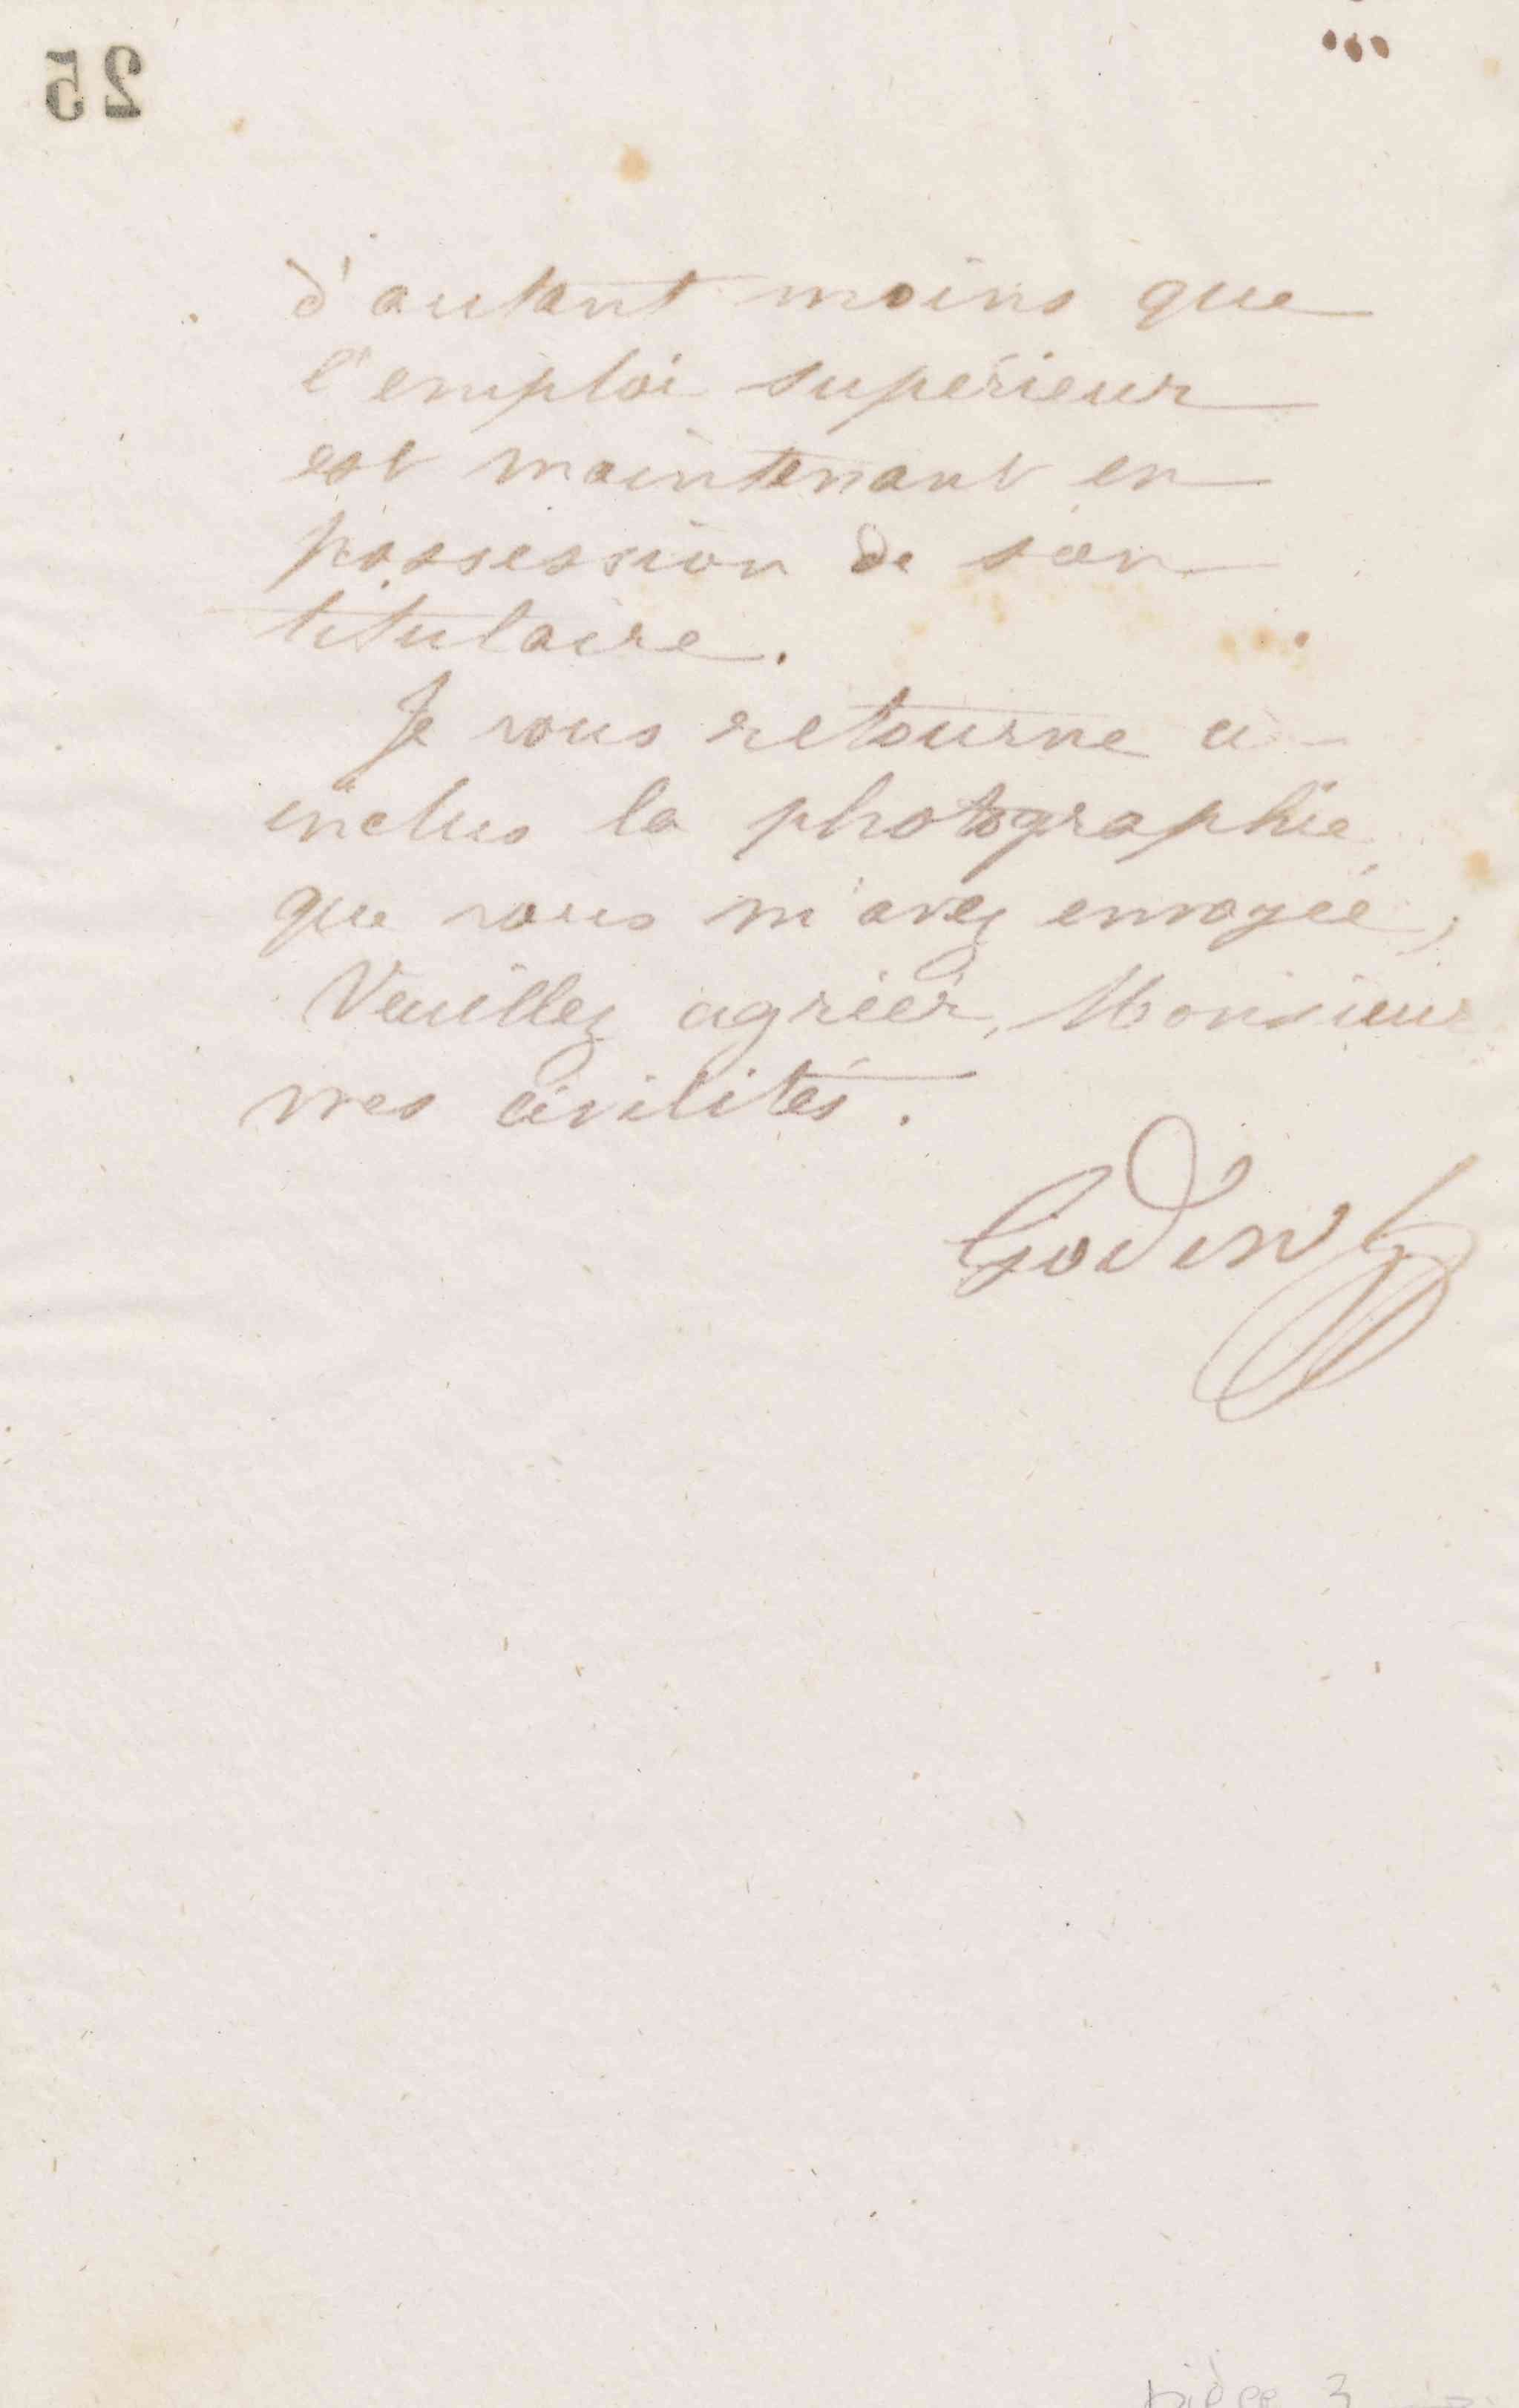 25
d'autant moins que
l'emploi supérieur
est maintenant en
possession de son
titulaire.
Je vous retourne ci-
inclus la photographie
que vous m'avez envoyée,
Veuillez agréer, Monsieur
mes civilités.
Godin
pièce 3